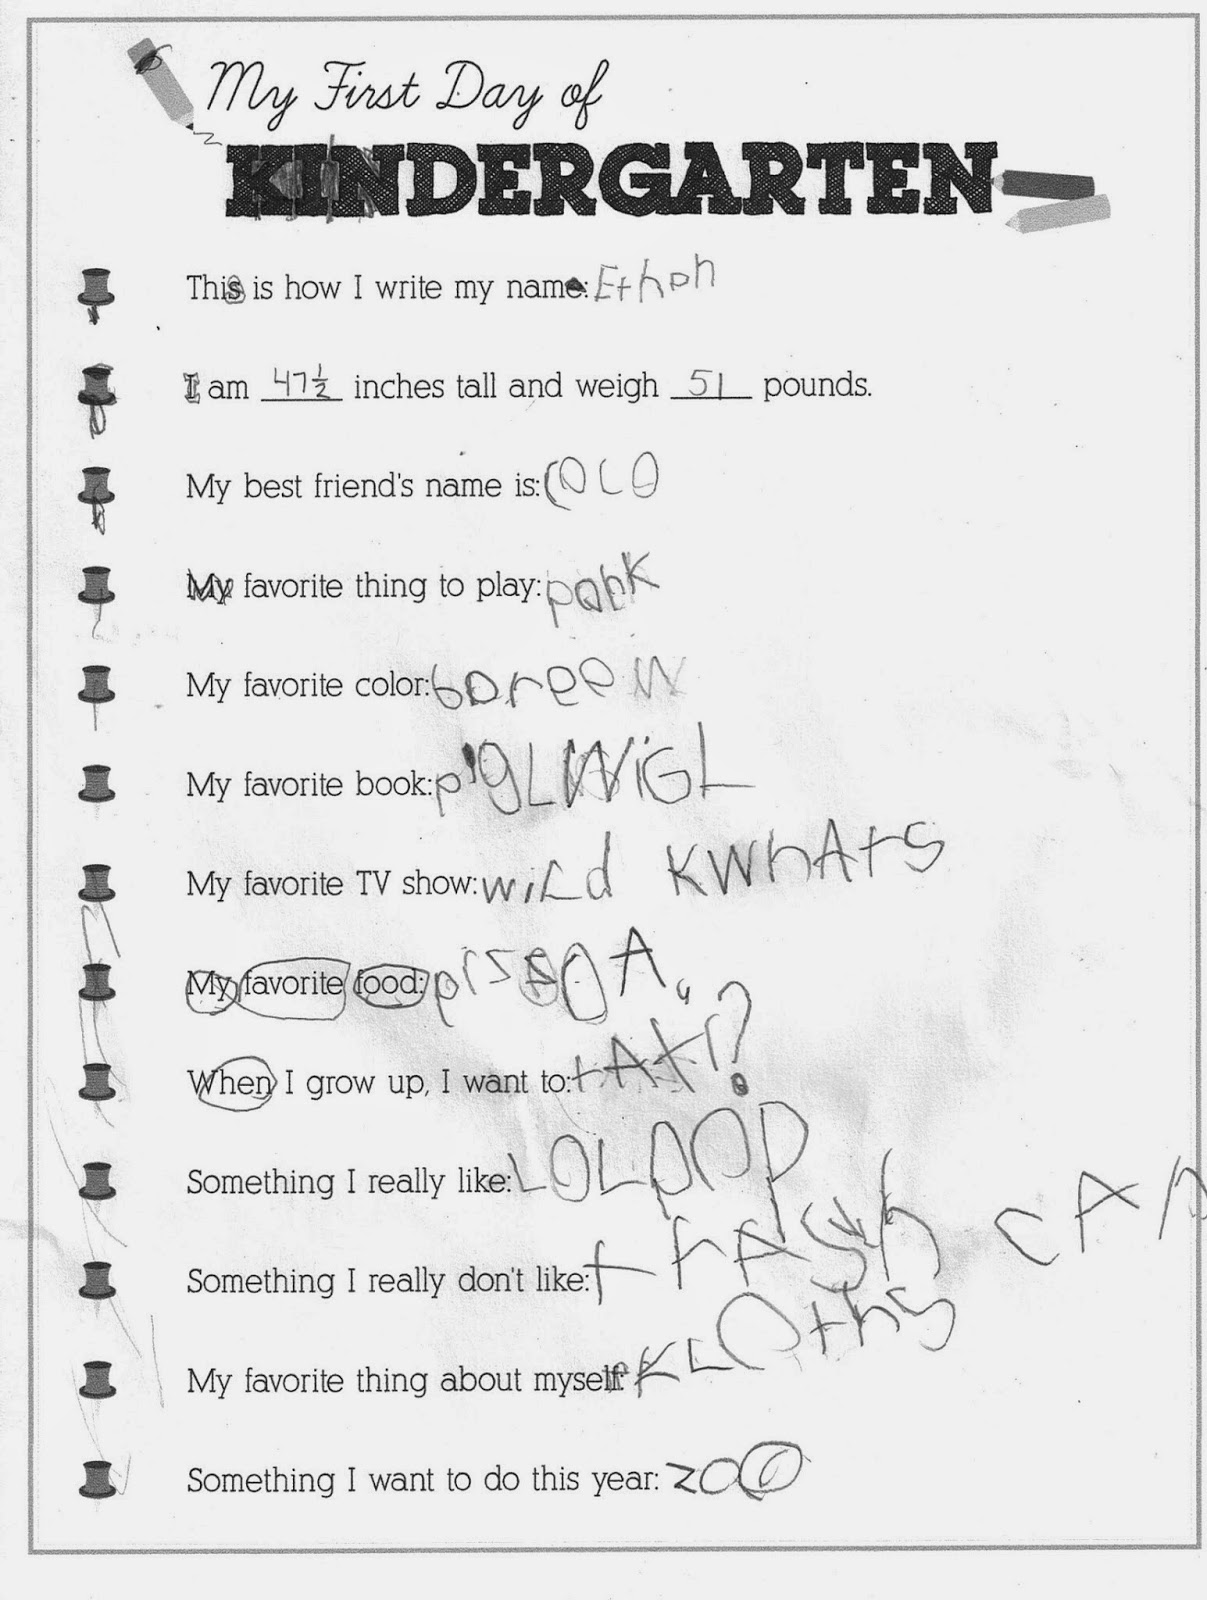 My First Day of
KINDERGARTEN
This is how I write my name: Ethan
I am 47½ inches tall and weigh 51 pounds.
My best friend's name is: COLO
My favorite thing to play: park
My favorite color: green
My favorite book: pigLWiGL
My favorite TV show: wiLd KWhAts
My favorite food:
When I grow up, I want to: tAxi?
Something I really like: LOLPOP
Something I really don't like: trAsh CAn
My favorite thing about myself: KLOthS
Something I want to do this year: ZOO